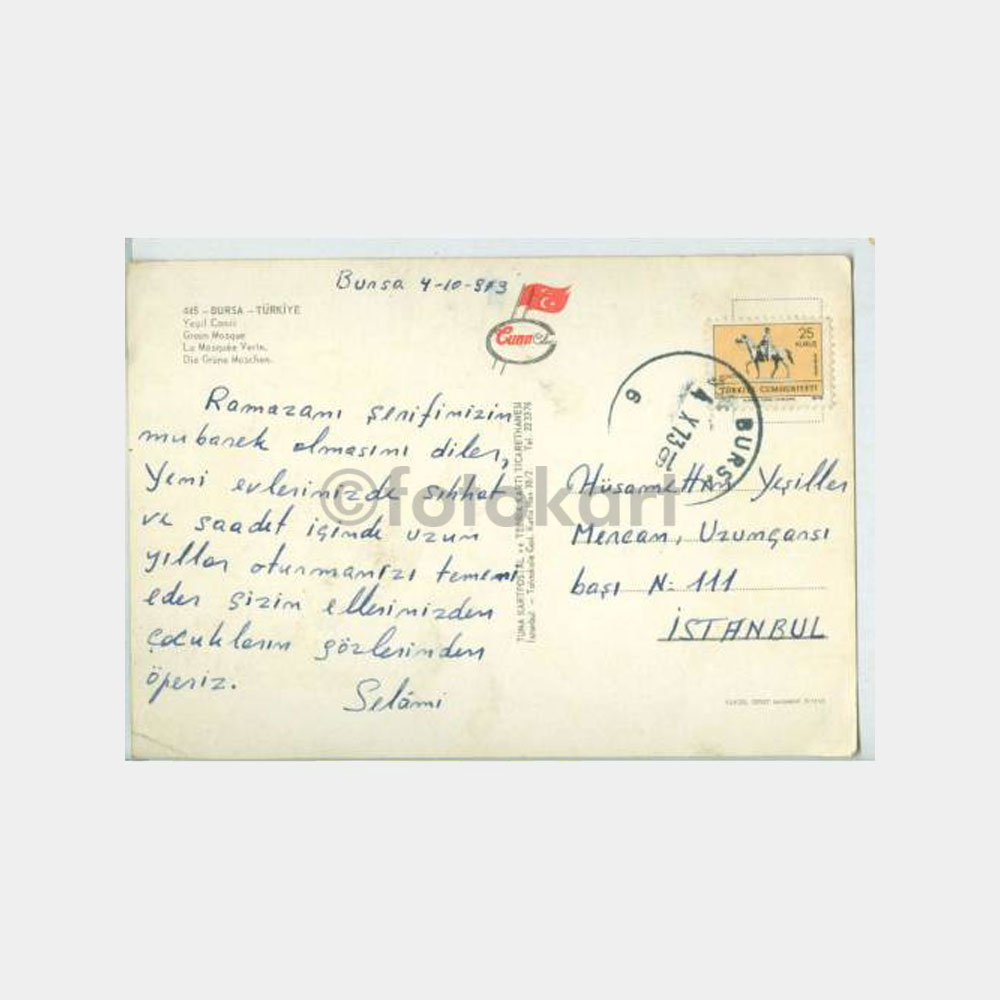 Bursa 4-10-973
445 - BURSA - TÜRKİYE
Yeşil Camii
Green Mosque
La Mosquée Verte.
Die Grüne Moschee.
25
KURUŞ
TÜRKİYE CUMHURİYETİ
BURSA
4 X 73
6
Ramazanı şerifinizin
mubarek olmasını diler,
Yeni evlerinizde sıhhat
ve saadet içinde uzun
yıllar oturmanızı temenni
eder sizin ellerinizden
çocukların gözlerinden
öperiz.
Selâmi
TUNA KARTPOSTAL ve TEBRİK KARTI TİCARETHANESİ
İstanbul - Tahtakale Cad. No 30/2 Tel. 223376
©fotokart
Hüsamettin Yeşiller
Mercan, Uzunçarşı
başı N: 111
İSTANBUL